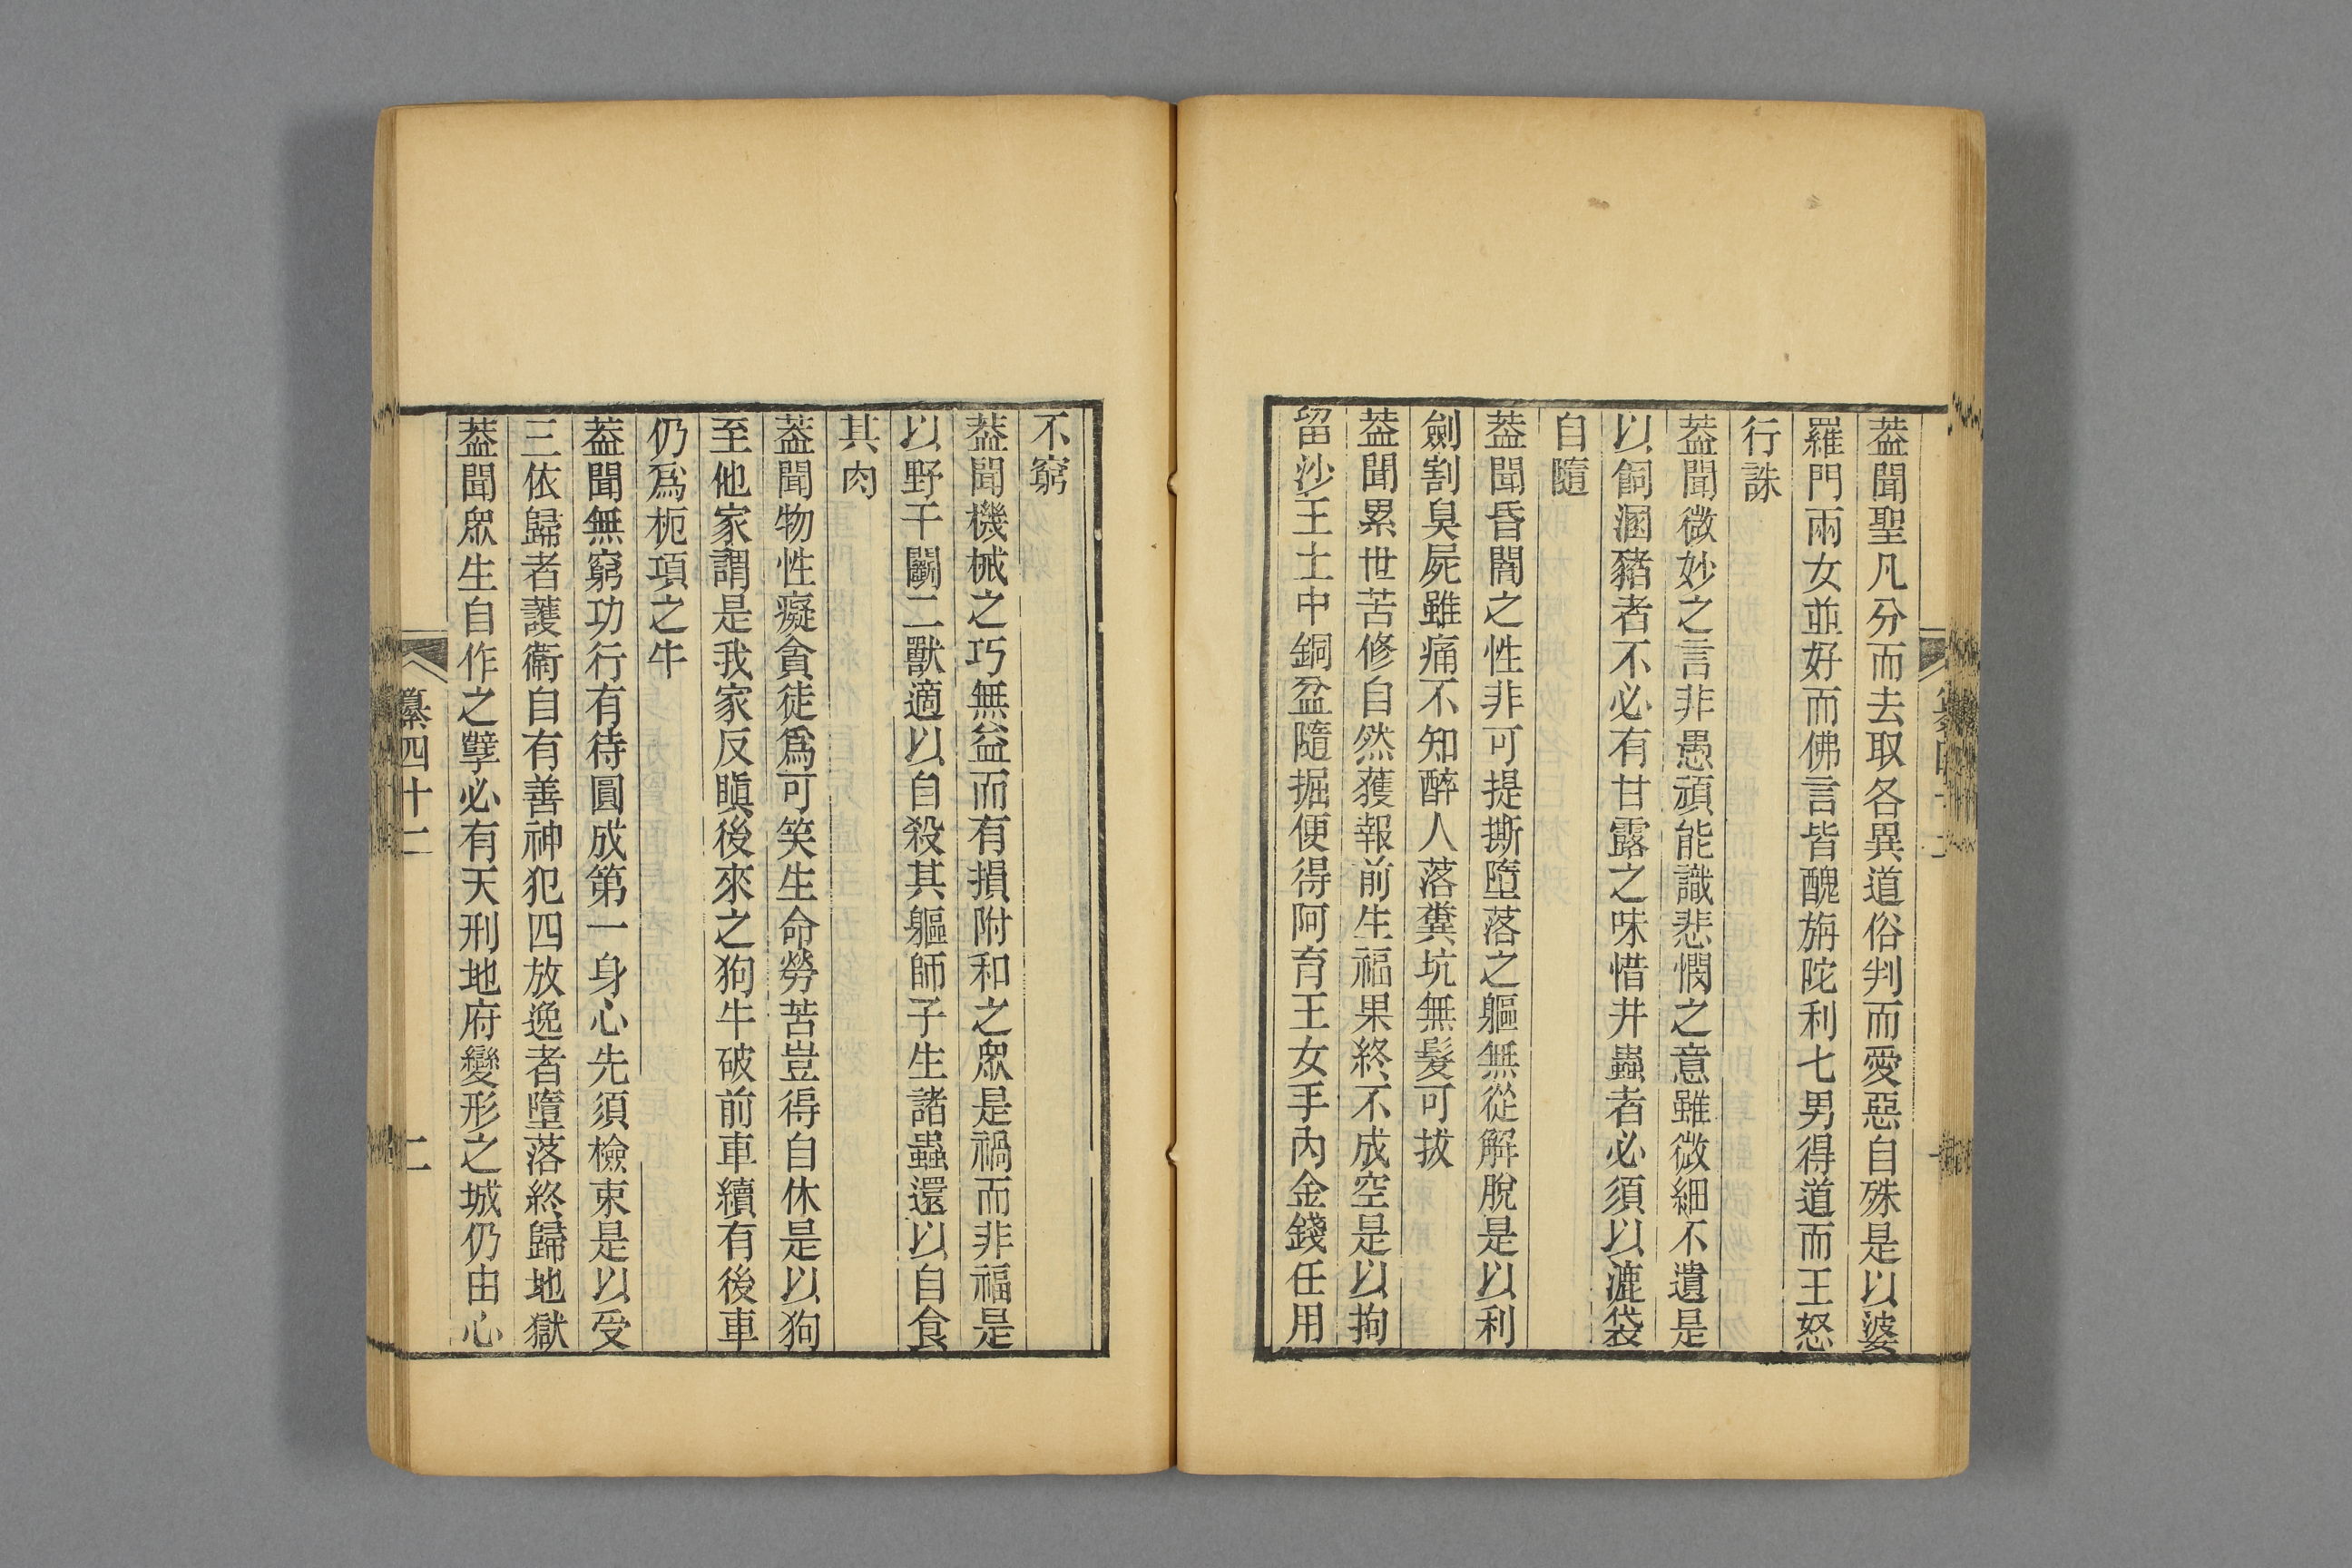 葢聞聖凡分而去取各異道俗判而愛惡自殊是以婆
羅門兩女並好而佛言皆醜旃陀利七男得道而王怒
行誅
葢聞微妙之言非愚頑能識悲憫之意雖微細不遺是
以飼溷豬者不必有甘露之味惜井蟲者必須以漉袋
自隨
葢聞昏闇之性非可提撕墮落之軀無從解脫是以利
劍割臭屍雖痛不知醉人落糞坑無髮可拔
葢聞累世苦修自然獲報前生福果終不成空是以拘
留沙王土中銅盆隨掘便得阿育王女手內金錢任用
不窮
葢聞機械之巧無益而有損附和之眾是禍而非福是
以野干鬭二獸適以自殺其軀師子生諸蟲還以自食
其肉
葢聞物性癡貪徒爲可笑生命勞苦豈得自休是以狗
至他家謂是我家反瞋後來之狗牛破前車續有後車
仍爲枙項之牛
葢聞無窮功行有待圓成第一身心先須檢束是以受
三依歸者護衞自有善神犯四放逸者墮落終歸地獄
葢聞眾生自作之孽必有天刑地府變形之城仍由心
纂四十二
二